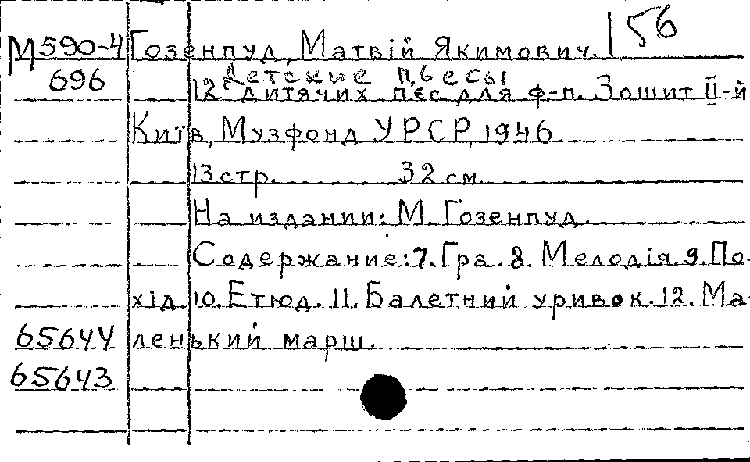 М590-4 Гозенпуд, Матвій Якимович. 156
696 Детские пьесы
12 дитячих п'єс для ф-п. Зошит II-й
Київ, Музфонд УРСР, 1946
13 стр. 32 см.
На издании: М. Гозенпуд.
Содержание: 7. Гра. 8. Мелодія. 9. По-
хід. 10. Етюд. 11. Балетний уривок. 12. Ма-
65644 ленький марш.
65643